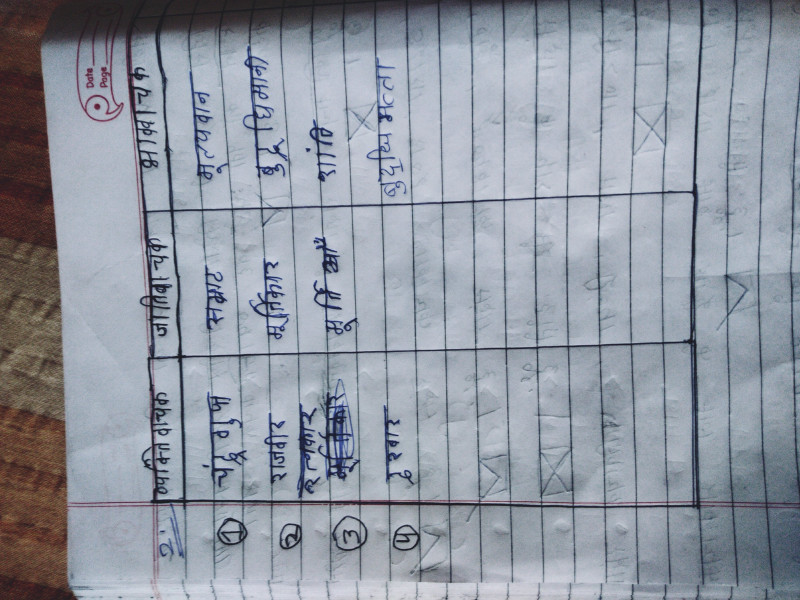 Date
Page
2. व्यक्तिवाचक जातिवाचक भाववाचक
① चंद्रगुप्त सम्राट मूल्यवान
② राजवीर मूर्तिकार बुद्धिमानी
③ मूर्तियाँ शांति
④ दरबार बुद्धिमत्ता